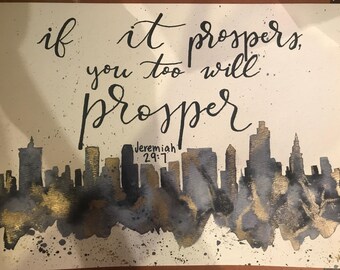 if it prospers,
you too will
prosper
Jeremiah
29:7